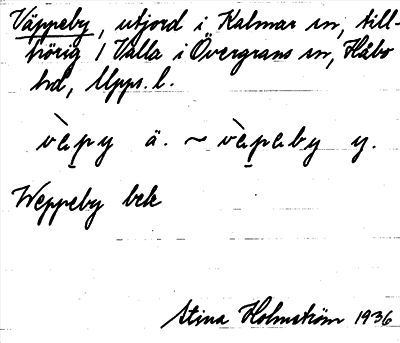 Väppeby, utjord i Kalmar sn, till-
hörig 1 Valla i Övergrans sn, Håbo
hd, Upps. l.
vàpy ä. ~ vàpəby y.
Weppeby bek
Stina Holmström 1936